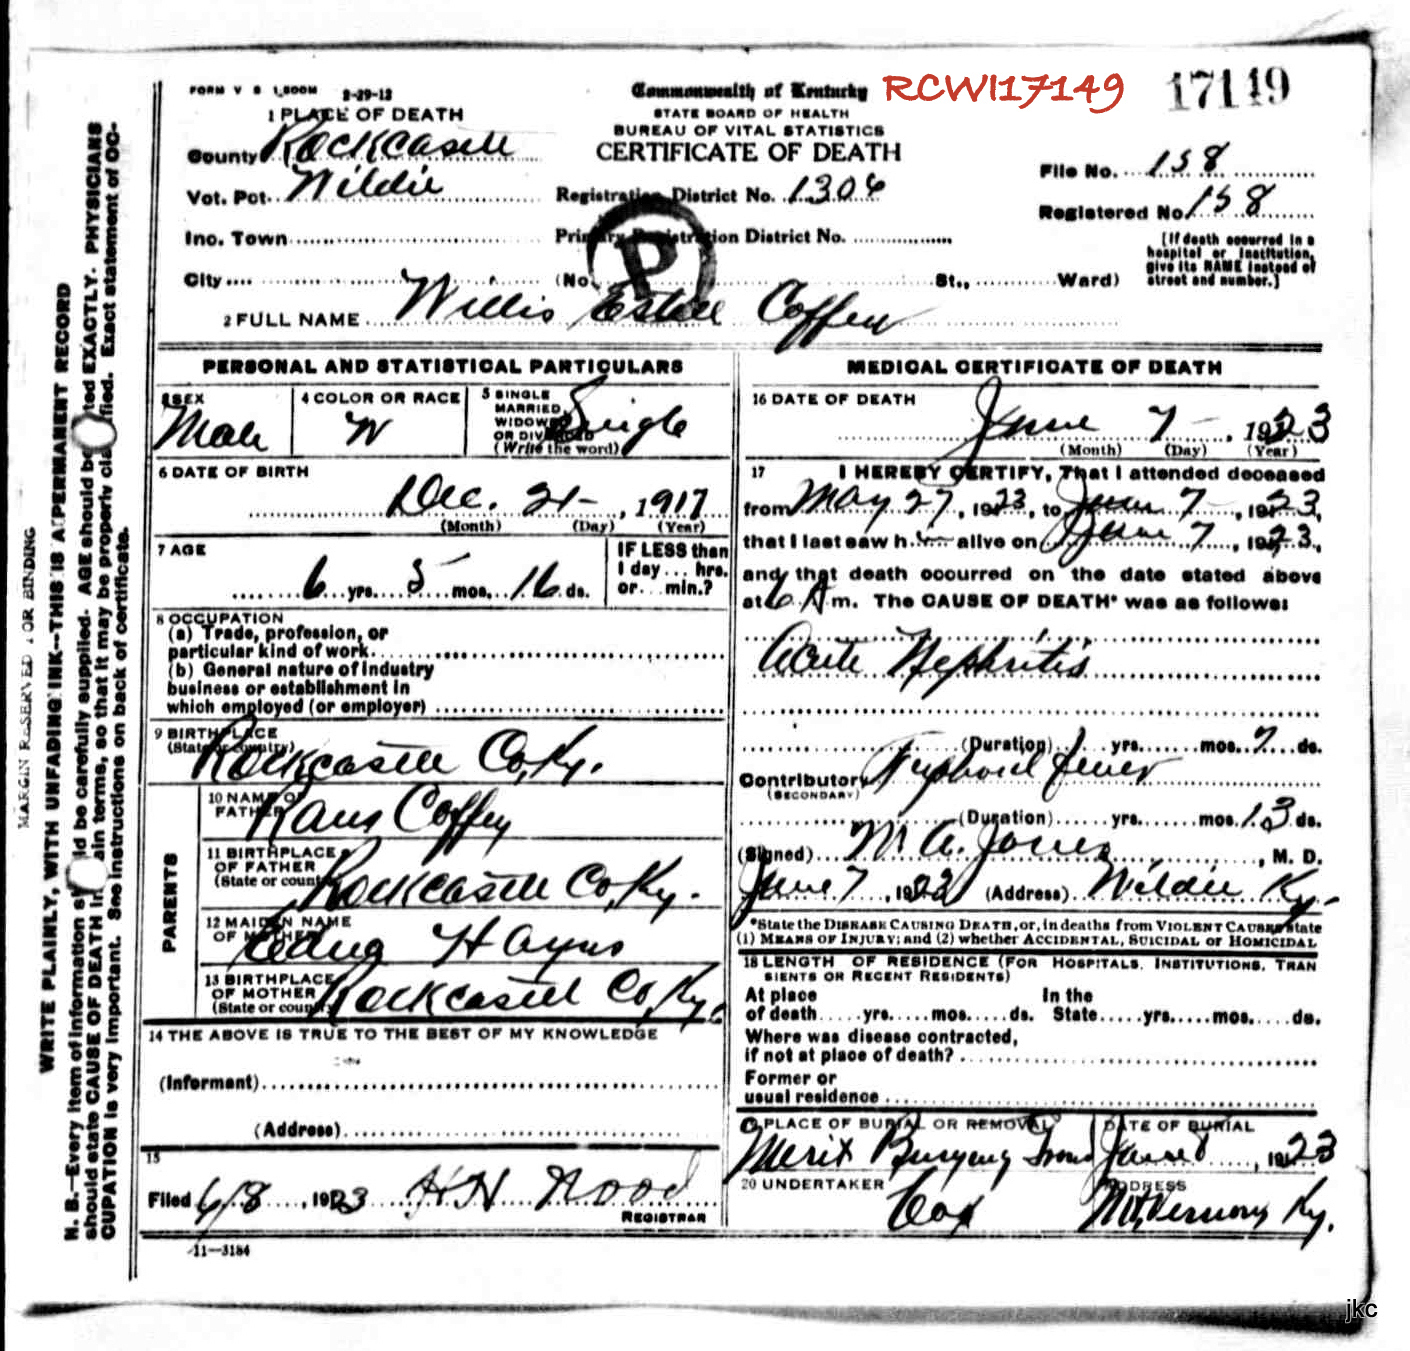 FORM V S 1,500M 2-29-12
Commonwealth of Kentucky
RCWI17149
17149
STATE BOARD OF HEALTH
BUREAU OF VITAL STATISTICS
CERTIFICATE OF DEATH
1 PLACE OF DEATH
County Rockcastle
Vot. Pct. Wildie
Inc. Town
City
Registration District No. 1306
Primary Registration District No.
(No. St., Ward)
P
File No. 158
Registered No. 158
[If death occurred in a
hospital or institution,
give its NAME instead of
street and number.]
2 FULL NAME Willis Estill Coffey
PERSONAL AND STATISTICAL PARTICULARS
3 SEX
Male
4 COLOR OR RACE
W
5 SINGLE
MARRIED,
WIDOWED
OR DIVORCED
(Write the word)
Single
6 DATE OF BIRTH
Dec. 21 - , 1917
(Month) (Day) (Year)
7 AGE
6 yrs. 5 mos. 16 ds.
IF LESS than
1 day ... hrs.
or ... min.?
8 OCCUPATION
(a) Trade, profession, or
particular kind of work
(b) General nature of industry
business or establishment in
which employed (or employer)
9 BIRTHPLACE
(State or country)
Rockcastle Co, Ky.
PARENTS
10 NAME OF
FATHER
Coffey
11 BIRTHPLACE
OF FATHER
(State or country)
Rockcastle Co, Ky.
12 MAIDEN NAME
OF MOTHER
Edna Hayns
13 BIRTHPLACE
OF MOTHER
(State or country)
Rockcastle Co, Ky.
14 THE ABOVE IS TRUE TO THE BEST OF MY KNOWLEDGE
(Informant)
(Address)
15
Filed 6/8, 1923 H H Wood
REGISTRAR
11-3184
MEDICAL CERTIFICATE OF DEATH
16 DATE OF DEATH
June 7 - , 1923
(Month) (Day) (Year)
17 I HEREBY CERTIFY, That I attended deceased
from May 27, 1923, to June 7 - , 1923,
that I last saw him alive on June 7, 1923,
and that death occurred on the date stated above
at 6 A m. The CAUSE OF DEATH* was as follows:
Acute Nephritis
(Duration) yrs. mos. 7 ds.
Contributory Typhoid fever
(SECONDARY)
(Duration) yrs. mos. 13 ds.
(Signed) M. A. Jones, M. D.
June 7, 1923 (Address) Wildie Ky.
*State the DISEASE CAUSING DEATH, or, in deaths from VIOLENT CAUSES state
(1) MEANS OF INJURY; and (2) whether ACCIDENTAL, SUICIDAL or HOMICIDAL
18 LENGTH OF RESIDENCE (FOR HOSPITALS, INSTITUTIONS, TRAN
SIENTS OR RECENT RESIDENTS)
At place
of death yrs. mos. ds.
In the
State yrs. mos. ds.
Where was disease contracted,
if not at place of death?
Former or
usual residence
19 PLACE OF BURIAL OR REMOVAL
DATE OF BURIAL
, 1923
20 UNDERTAKER
Cox
ADDRESS
Mt. Vernon, Ky.
MARGIN RESERVED FOR BINDING
WRITE PLAINLY, WITH UNFADING INK--THIS IS A PERMANENT RECORD
N. B.--Every item of information should be carefully supplied. AGE should be stated EXACTLY. PHYSICIANS
should state CAUSE OF DEATH in plain terms, so that it may be properly classified. Exact statement of OC-
CUPATION is very important. See instructions on back of certificate.
jkc